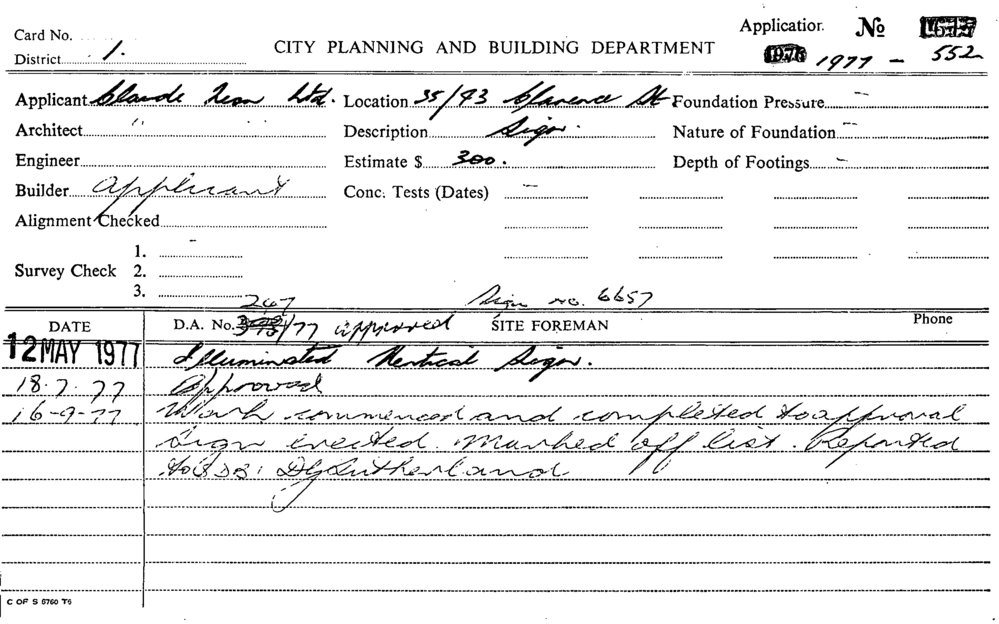 Card No.
Application No
District 1.
CITY PLANNING AND BUILDING DEPARTMENT
1976 1977 - 552
Applicant Claude Neon Ltd. Location 35/43 Clarence St Foundation Pressure -
Architect " Description Sign. Nature of Foundation -
Engineer Estimate $ 300. Depth of Footings -
Builder Applicant Conc. Tests (Dates) -
Alignment Checked -
1.
Survey Check 2.
3.
247 Sign no. 6657
DATE D.A. No. /77 approved SITE FOREMAN Phone
12 MAY 1977 Illuminated Vertical Sign.
18.7.77 Approved
16-9-77 Work commenced and completed to approval
sign erected. Marked off list. Reported
to DGSutherland
C OF S 6760 T6